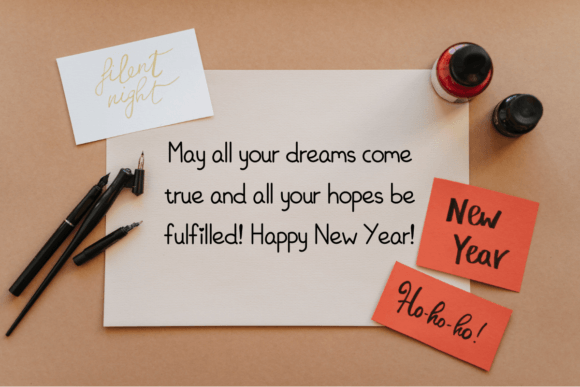 Silent
night
May all your dreams come
true and all your hopes be
fulfilled! Happy New Year!
New
Year
Ho-ho-ho!